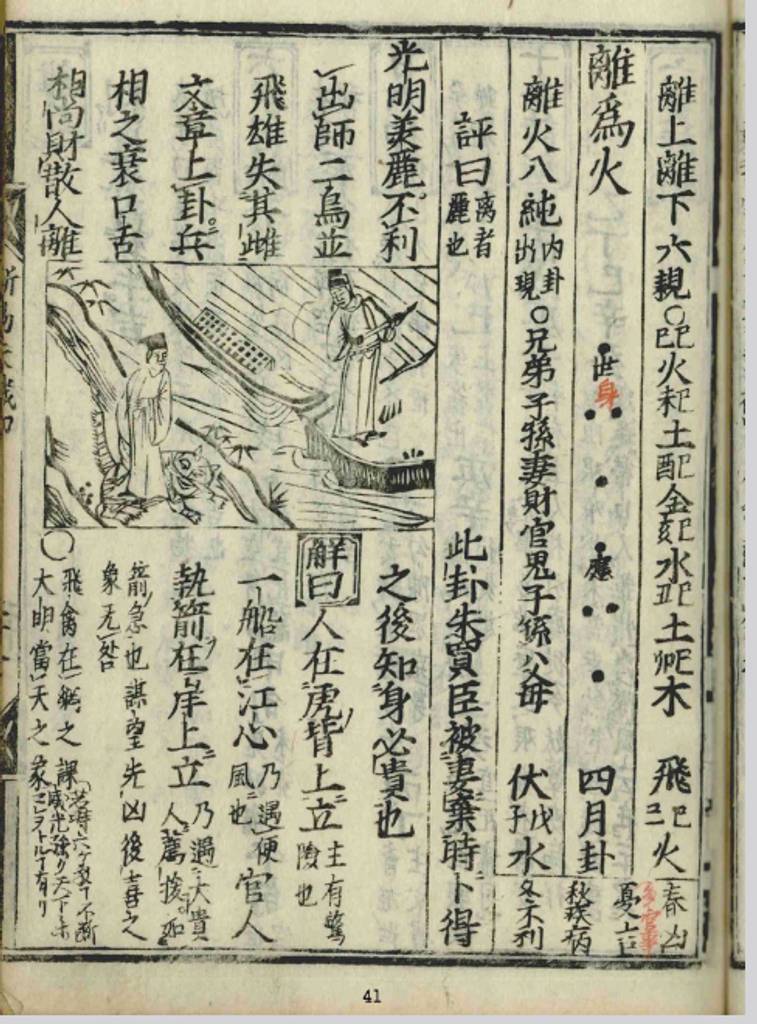 離上離下六親○
巳火未土酉金亥水丑土卯木
飛巳火
離爲火
世
身
應
四月卦
離火八純
内卦出現
○兄弟子孫妻財官鬼子孫父母
伏戊子水
春凶
多官事
夏吉
秋疾病
冬不利
評曰
离者麗也
光明美麗不利
出師二鳥並
飛雄失其雌
文章上卦兵
相之衰口舌
相尚財散人離
此卦朱買臣被妻棄時卜得
之後知身必貴也
解曰
人在虎背上立
主有驚險也
一船在江心
乃遇便風也
官人
執箭在岸上立
乃遇大貴人薦拔
箭急也謀望先凶後喜之
象无咎
○
飛禽在網之課
大明當天之象
41